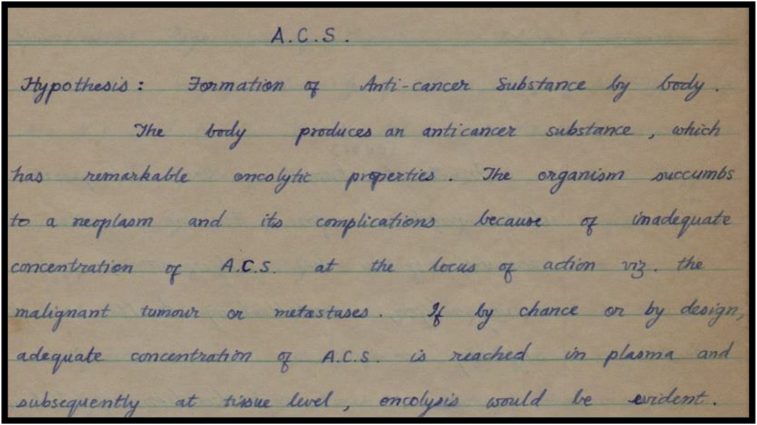 A.C.S.
Hypothesis: Formation of Anti-cancer Substance by body.
The body produces an anticancer substance, which
has remarkable oncolytic properties. The organism succumbs
to a neoplasm and its complications because of inadequate
concentration of A.C.S. at the locus of action viz. the
malignant tumour or metastases. If by chance or by design,
adequate concentration of A.C.S. is reached in plasma and
subsequently at tissue level, oncolysis would be evident.